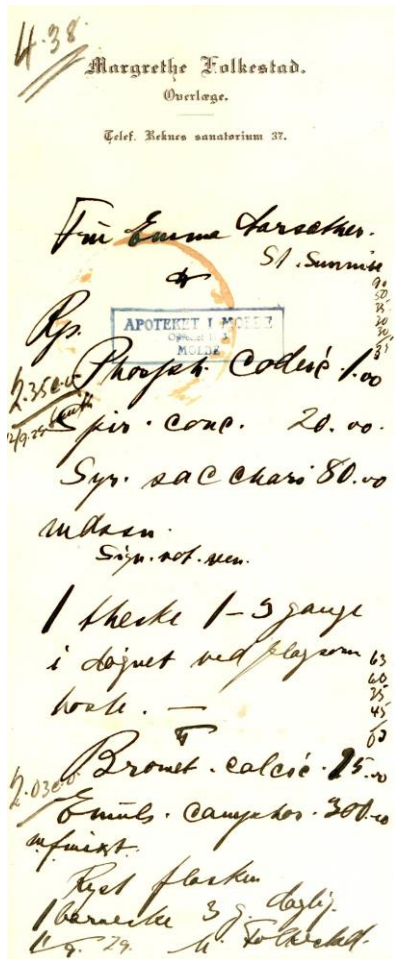 4.38
Margrethe Folkestad.
Overlæge.
Telef. Reknes sanatorium 37.
Frü Emma Varsæther.
St. Sunnise
90
50
25
20
30
APOTEKET I MOLDE
MOLDE
Rp.
Phosph. codeic. 1.00
2.35
Spir. conc. 20.00.
12/9.29
Syr. sacchari 80.00
mdssn.
Sign. not. ven.
1 theske 1-3 gange
i døgnet ved plagsom
hoste. —
63
60
25
45
Bromet. calcic. 15.00
2.03
Emuls. camphor. 300.00
Ryst flasken
1 barneske 3 g. daglig.
11/9. 29. M. Folkestad.